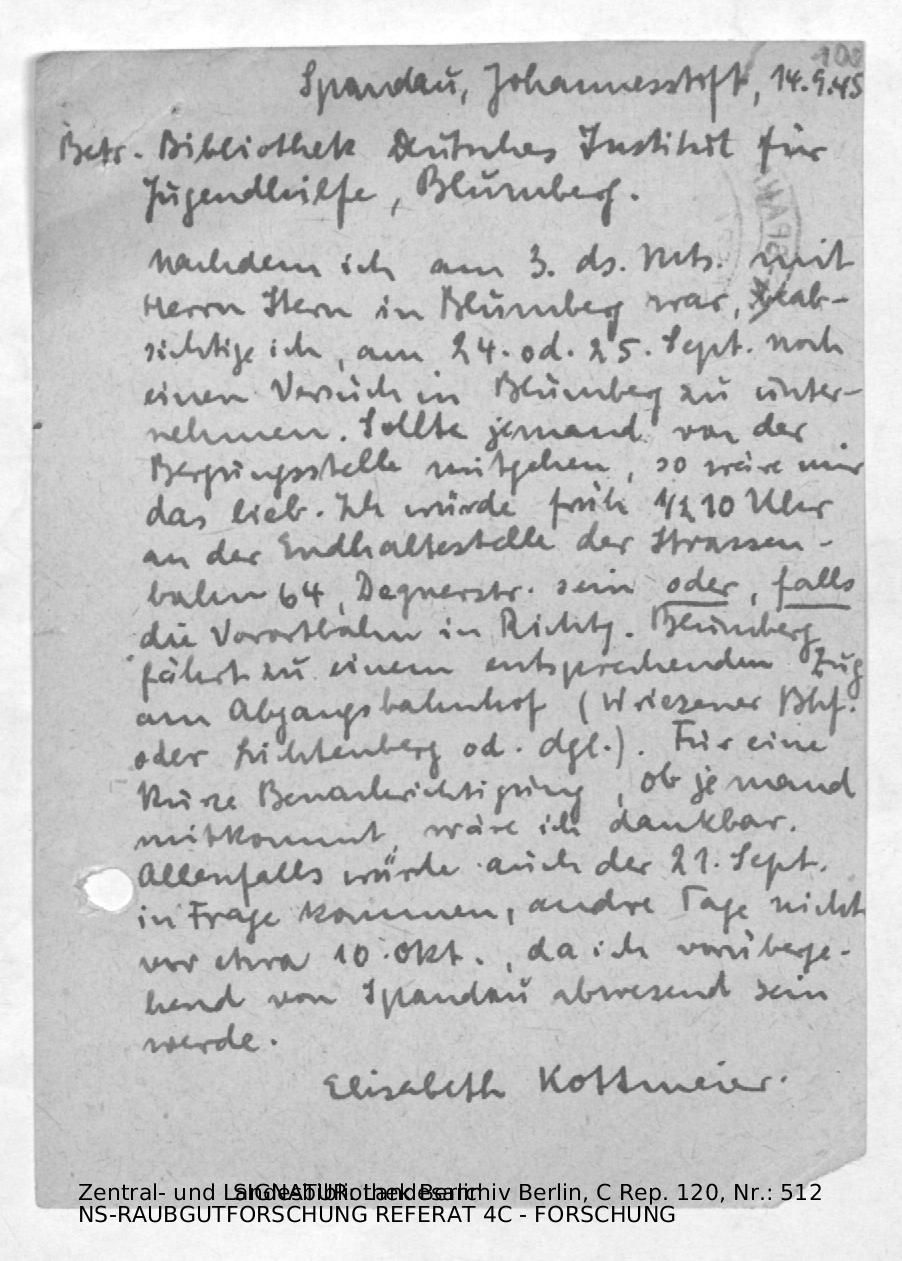 108
Spandau, Johannesstift, 14.9.45
Betr. Bibliothek Deutsches Institut für
Jugendhilfe, Blumberg.
Nachdem ich am 3. ds. Mts. mit
Herrn Stern in Blumberg war, beab-
sichtige ich, am 24. od. 25. Sept. noch
einen Versuch in Blumberg zu unter-
nehmen. Sollte jemand von der
Bergungsstelle mitgehen, so wäre mir
das lieb. Ich würde früh 1/2 10 Uhr
an der Endhaltestelle der Strassen-
bahn 64, Degnerstr. sein oder, falls
die Vorortbahn in Richtg. Blumberg
fährt zu einem entsprechenden Zug
am Abgangsbahnhof (Wriezener Bhf.
oder Lichtenberg od. dgl.). Für eine
kurze Benachrichtigung, ob jemand
mitkommt, wäre ich dankbar.
Allenfalls würde auch der 21. Sept.
in Frage kommen, andre Tage nicht
vor etwa 10. Okt., da ich vorüberge-
hend von Spandau abwesend sein
werde.
Elisabeth Kottmeier.
Zentral- und Landesbibliothek Berlin
SIGNATUR: Landesarchiv Berlin, C Rep. 120, Nr.: 512
NS-RAUBGUTFORSCHUNG REFERAT 4C - FORSCHUNG